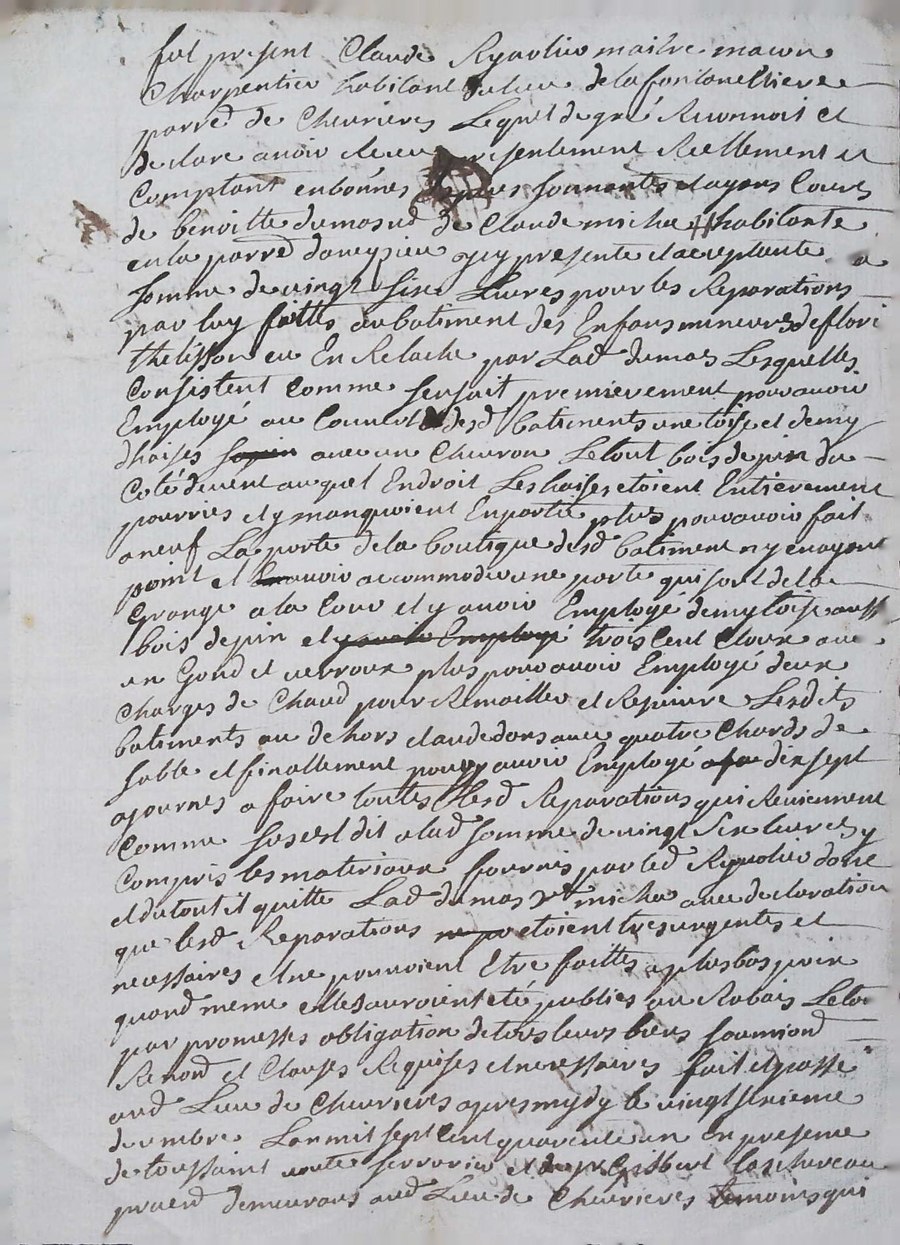 fut present Claude Ryvolier maitre macon
Charpentier habitant du lieu de la fontonelliere
parr^e de Chevrieres Lequel de gré Reconnoit et
declare avoir Receu presentement Reellement et
Comptant en bonnes especes sonnantes et ayans Cours
de benoitte dumas v^e de Claude micha habitante
en la parr^e daveyzieu icy presente et acceptante
somme de vingt six Livres pour les Reparations
par luy faittes au batiment des Enfans mineurs de flori
thelisson en Relache par Lad dumas Lesquelles
Consistent Comme sensuit premierement pour avoir
Employé au Couvert desd batiments une toise et demy
dhaises avec un Chevron Le tout bois de pin du
Coté de vent auquel Endroit Les haises etoient Entierement
pourries et y manquoient En partie plus pour avoir fait
a neuf La porte de la boutique desd batiment ny en ayant
point et avoir accommodé une porte qui sort de la
Grange a la Cour et y avoir Employé demy toise aussy
bois de pin et trois Cent Cloux avec
un Gond et verroux plus pour avoir Employé deux
Charges de Chaud pour Remailler et Rejoindre Lesdits
batiments au dehors et au dedans avec quatre Chards de
sable et finallement pour y avoir Employé dix sept
ajournés a faire touttes Lesd Reparations qui Reviennent
Comme sus est dit a lad somme de vingt six livres y
Compris les materiaux fournis par led Ryvolier dont
et du tout il quitte Lad dumas v^e micha avec declaration
que lesd Reparations etoient tres urgentes et
necessaires et ne pouvoient Etre faittes a plus bas prix
quand meme elles auroient eté publiés au Rabais Le tout
par promesses obligation de tous leurs biens soumiond
Renond et Clauses Requises et necessaires fait et passé
aud Lieu de Chevrieres apres mydy le vingt sixieme
Lan mil sept Cent quarante un en presence
de toussaint serrurier et de Gilbert
praend demeurans aud Lieu de Chevrieres temoins qui